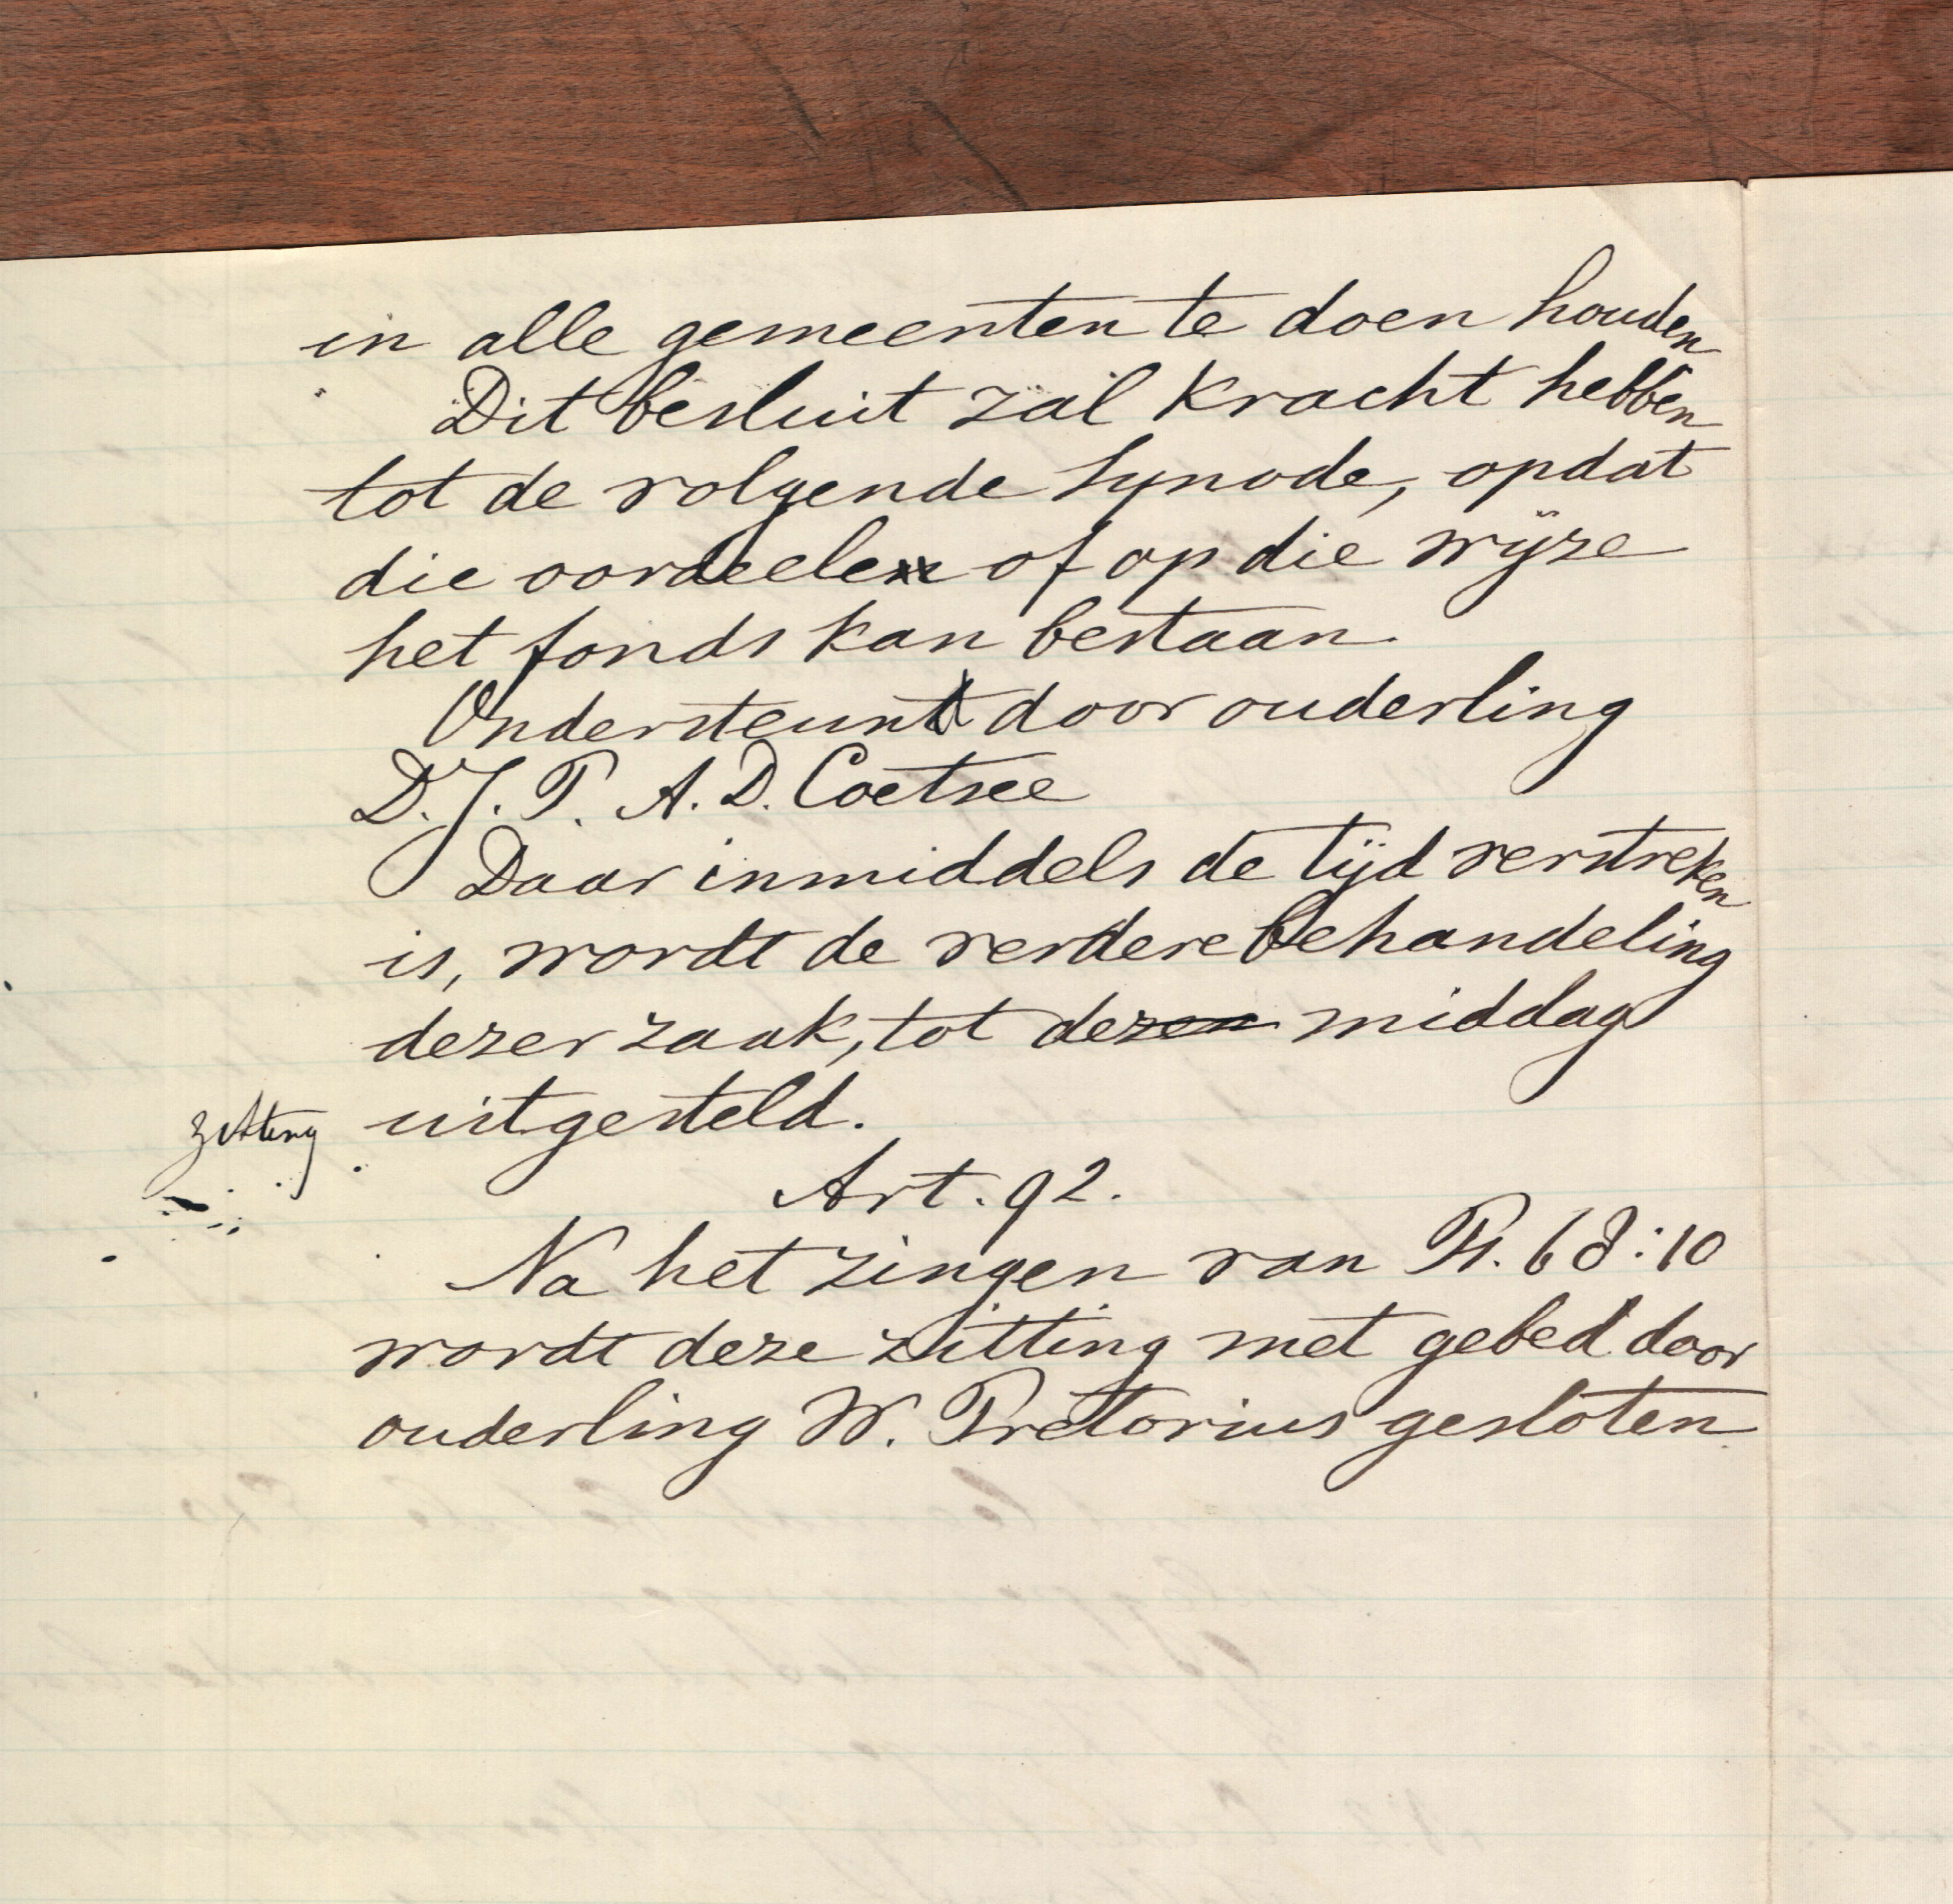 in alle gemeenten te doen houden
Dit besluit zal kracht hebben
tot de volgende Synode, opdat
die oordeele of op die wijze
het fonds kan bestaan.
Ondersteunt door ouderling
D. J. P. A. D. Coetsee
Daar inmiddels de tijd verstreken
is, wordt de verdere behandeling
dezer zaak, tot dezen middag
zitting uitgesteld.
Art. 92.
Na het zingen van Ps. 68:10
wordt deze zitting met gebed door
ouderling W. Pretorius gesloten